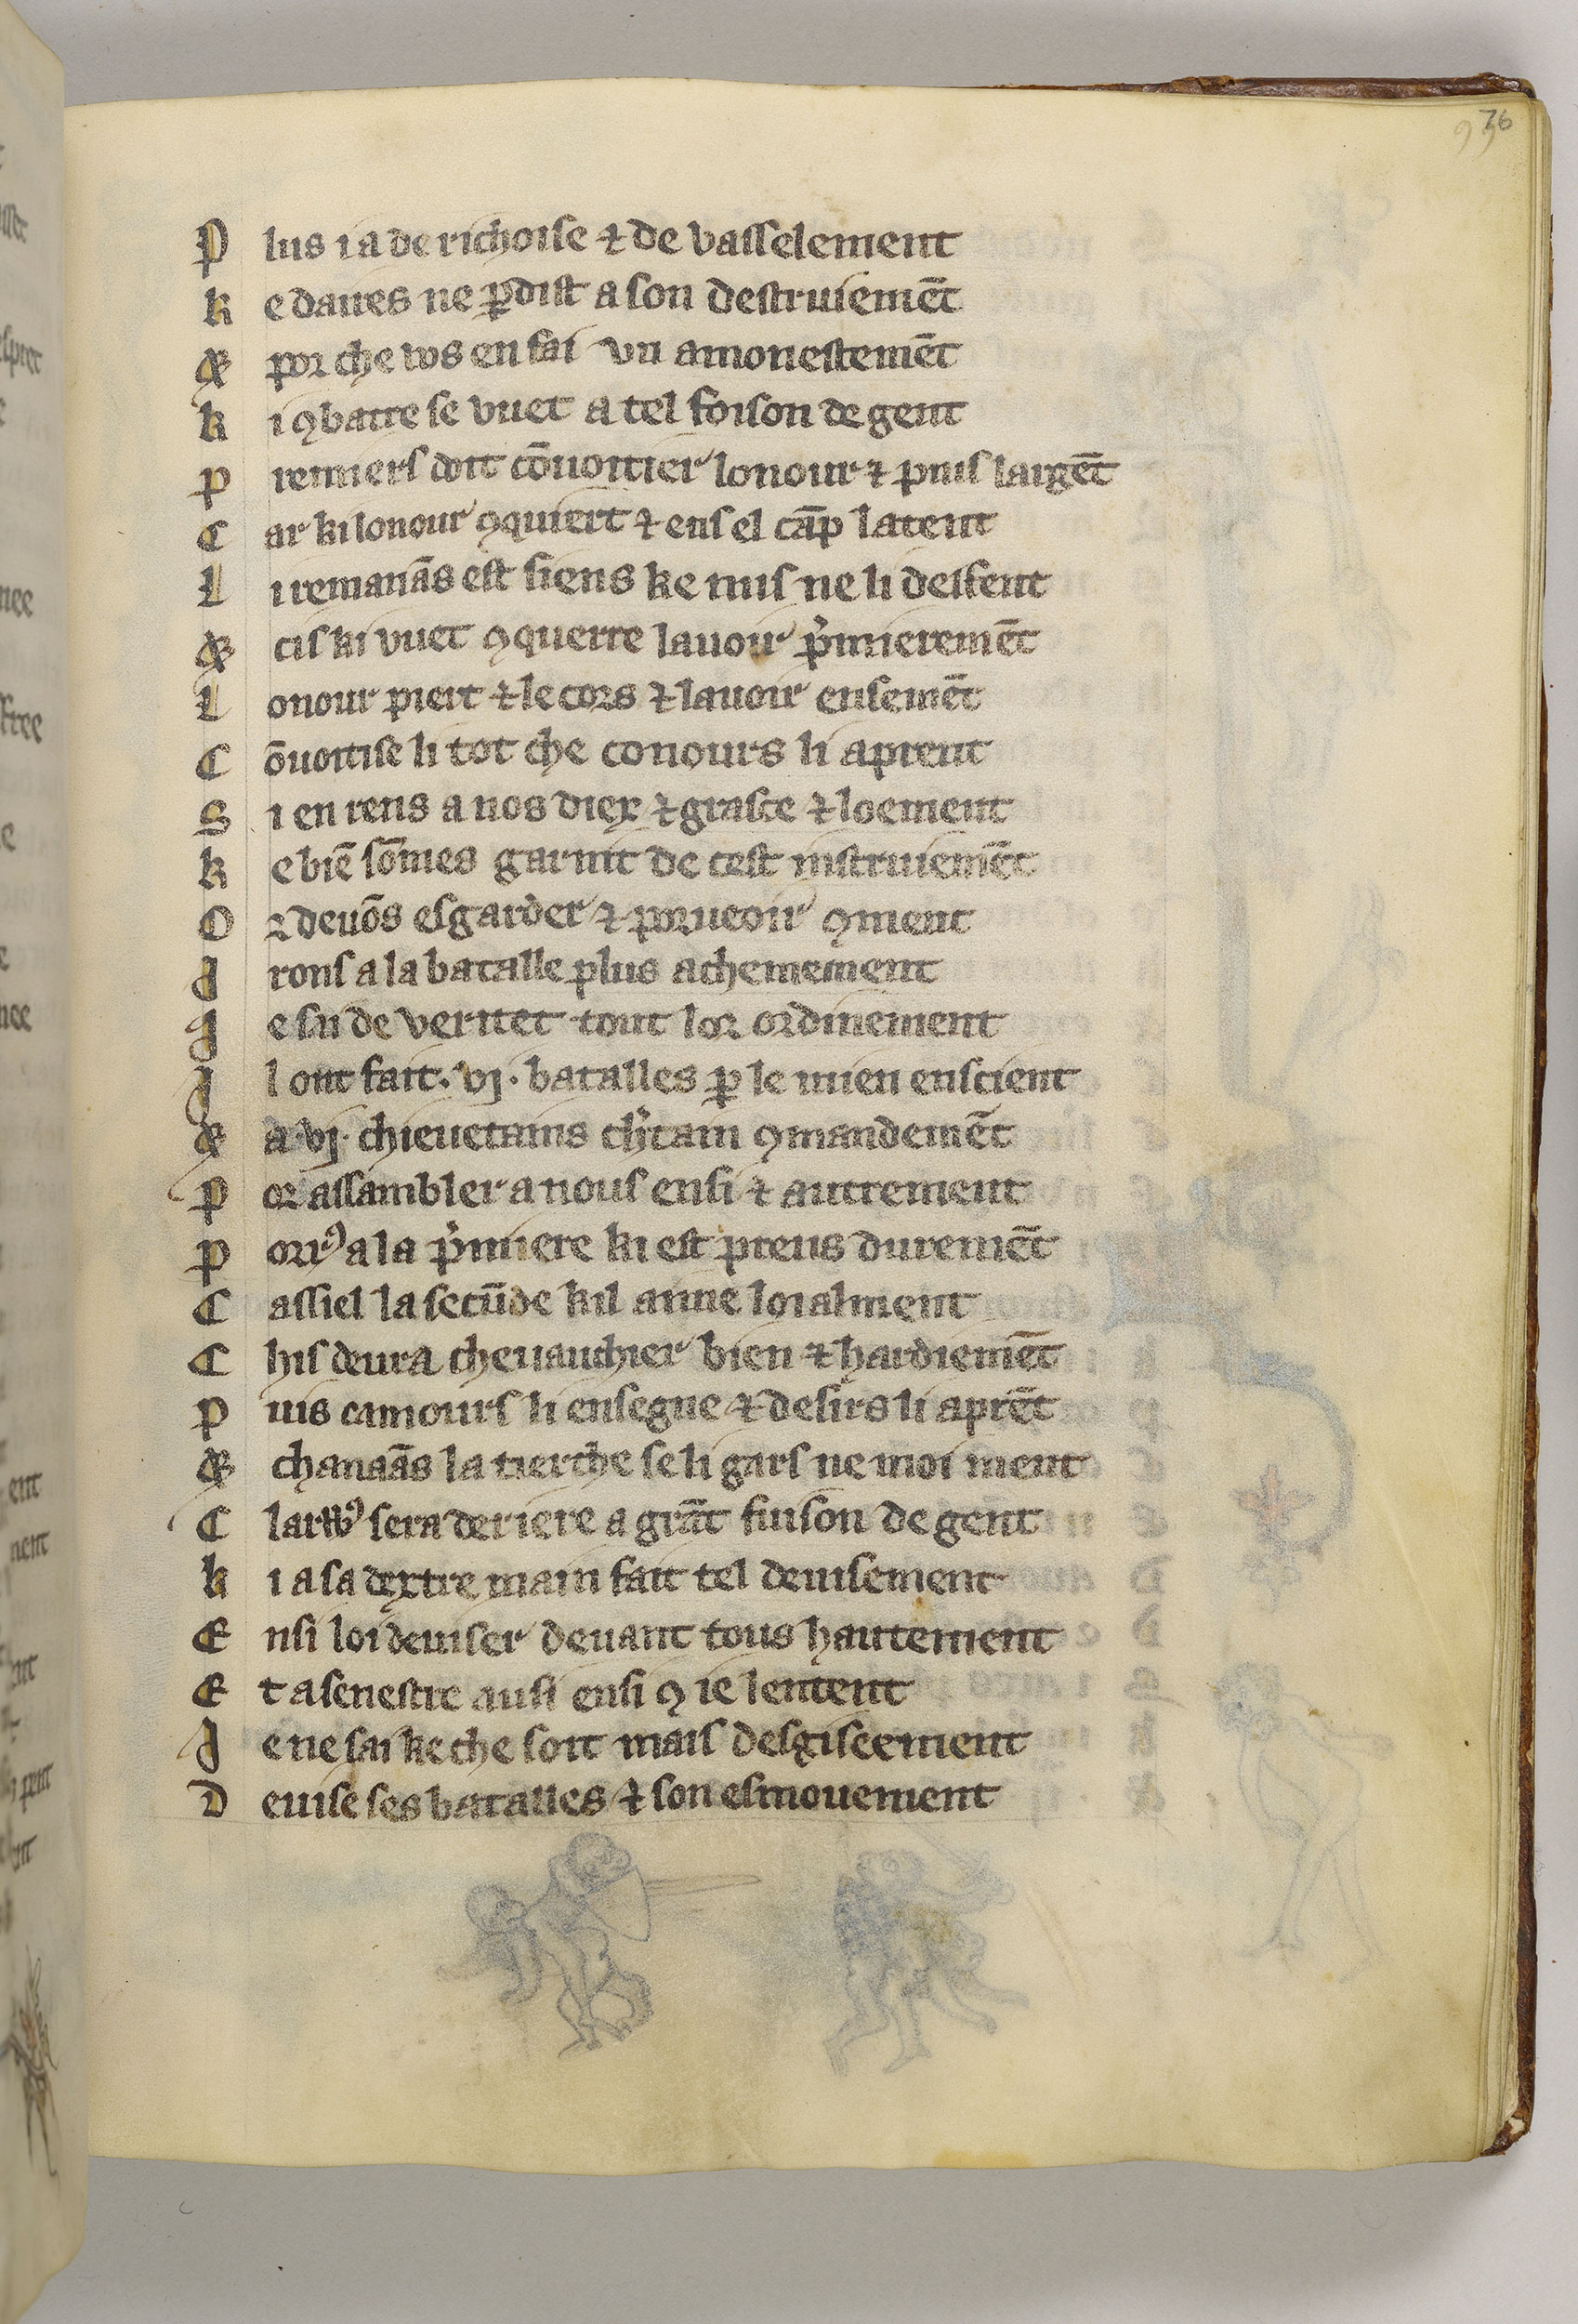 76
P lus i a de richoise ⁊ de vasselement
k e daues ne ꝑdist a son destruiemēt
& por che vos en fai vn amonestemēt
k i ꝯbatre se vuet a tel foison de gent
p remiers doit cōuoitier lonour ⁊ puis largēt
C ar ki lonour ꝯquiert ⁊ ens el cāp latent
L i remanās est siens ke nus ne li deffent
& cis ki vuet ꝯquerre lauoir p̍mieremēt
L onour piert ⁊ le cors ⁊ lauoir ensemēt
C ōuoitise li tot che conours li aprent
S i en rens a nos diex ⁊ grasce ⁊ loement
k e biē sōmes garnit de cest instruiemēt
O r deuōs esgarder ⁊ porueoir ꝯment
J rons a la batalle plus achememement
J e sai de veritet tout lor ordinement
J l ont fait .vj. batalles ꝑ le mien enscient
& a .vj. chieuetains ch̍tain ꝯmandemēt
p or assambler a nous ensi ⁊ autrement
p orrꝰ a la p̍miere ki est preus duremēt
C assiel la secūde kil aime loialment
C his deura cheuauchier bien ⁊ hardiemēt
p uis camours li ensegne ⁊ desirs li aprēt
& chanaās la tierche se li gars ne moi ment
C larwꝰ sera deriere a grāt fuison de gent
k i a sa dextre main fait tel deuisement
E nsi loi deuiser deuant tous hautement
E t a senestre ausi ensi ꝯ ie lentent
J e ne sai ke che soit mais desgiseement
D euise ses batalles ⁊ son esmouement